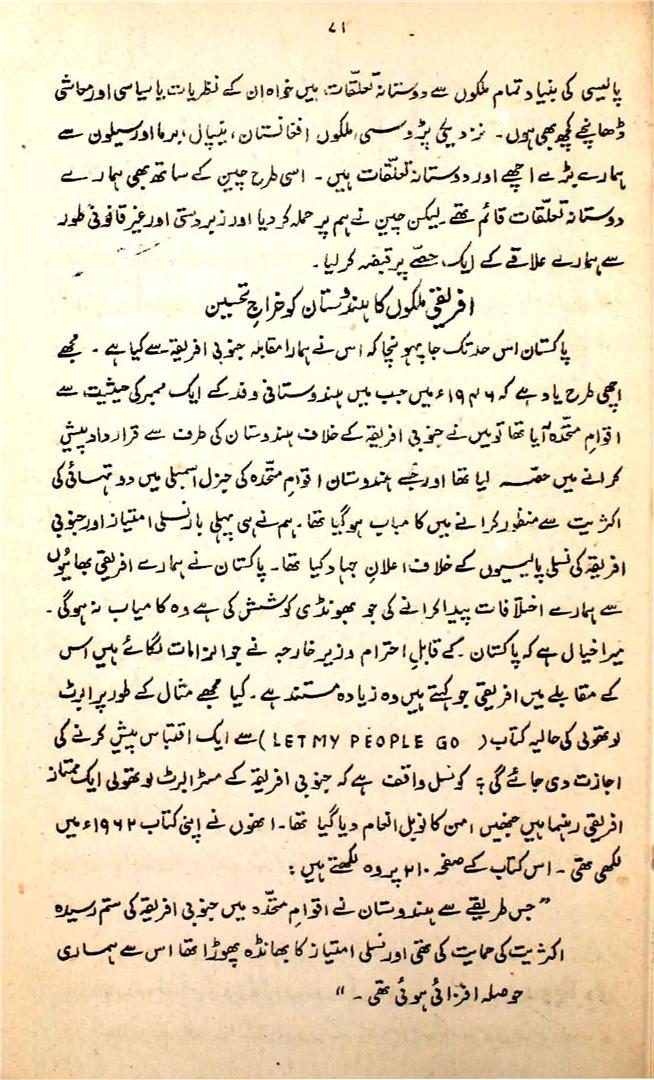 ۷۱
پالیسی کی بنیاد تمام ملکوں سے دوستانہ تعلقات ہیں خواہ ان کے نظریات یا سیاسی اور معاشی
ڈھانچے کچھ بھی ہوں۔ نزدیکی پڑوسی ملکوں افغانستان، نیپال، برما اور سیلون سے
ہمارے بڑے اچھے اور دوستانہ تعلّقات ہیں۔ اسی طرح چین کے ساتھ بھی ہمارے
دوستانہ تعلّقات قائم تھے لیکن چین نے ہم پر حملہ کر دیا اور زبردستی اور غیر قانونی طور
سے ہمارے علاقے کے ایک حصّے پر قبضہ کر لیا۔
افریقی ملکوں کا ہندوستان کو خراج تحسین
پاکستان اس حد تک جا پہونچا کہ اس نے ہمارا مقابلہ جنوبی افریقہ سے کیا ہے۔ مجھے
اچھی طرح یاد ہے کہ ۱۹۴۶ء میں جب میں ہندوستانی وفد کے ایک ممبر کی حیثیت سے
اقوامِ متحّدہ آیا تھا تو میں نے جنوبی افریقہ کے خلاف ہندوستان کی طرف سے قرارداد پیش
کرانے میں حصّہ لیا تھا اور جسے ہندوستان اقوامِ متحّدہ کی جنرل اسمبلی میں دو تہائی کی
اکثریت سے منظور کرانے میں کامیاب ہوگیا تھا۔ ہم نے ہی پہلی بار نسلی امتیاز اور جنوبی
افریقہ کی نسلی پالیسیوں کے خلاف اعلانِ جہاد کیا تھا۔ پاکستان نے ہمارے افریقی بھائیوں
سے ہمارے اختلافات پیدا کرانے کی جو بھونڈی کوشش کی ہے وہ کامیاب نہ ہوگی۔
میرا خیال ہے کہ پاکستان کے قابلِ احترام وزیر خارجہ نے جو الزامات لگائے ہیں اس
کے مقابلے میں افریقی جو کہتے ہیں وہ زیادہ مستند ہے۔ کیا مجھے مثال کے طور پر البرٹ
لوتھولی کی حالیہ کتاب (LET MY PEOPLE GO) سے ایک اقتباس پیش کرنے کی
اجازت دی جائے گی؟ کونسل واقف ہے کہ جنوبی افریقہ کے مسٹر البرٹ لوتھولی ایک ممتاز
افریقی رہنما ہیں جنھیں امن کا نوبل انعام دیا گیا تھا۔ انھوں نے اپنی کتاب ۱۹۶۲ء میں
لکھی تھی۔ اس کتاب کے صفحہ ۲۱۰ پر وہ لکھتے ہیں:
"جس طریقے سے ہندوستان نے اقوامِ متحّدہ میں جنوبی افریقہ کی ستم رسیدہ
اکثریت کی حمایت کی تھی اور نسلی امتیاز کا بھانڈہ پھوڑا تھا اس سے ہماری
حوصلہ افزائی ہوئی تھی۔"